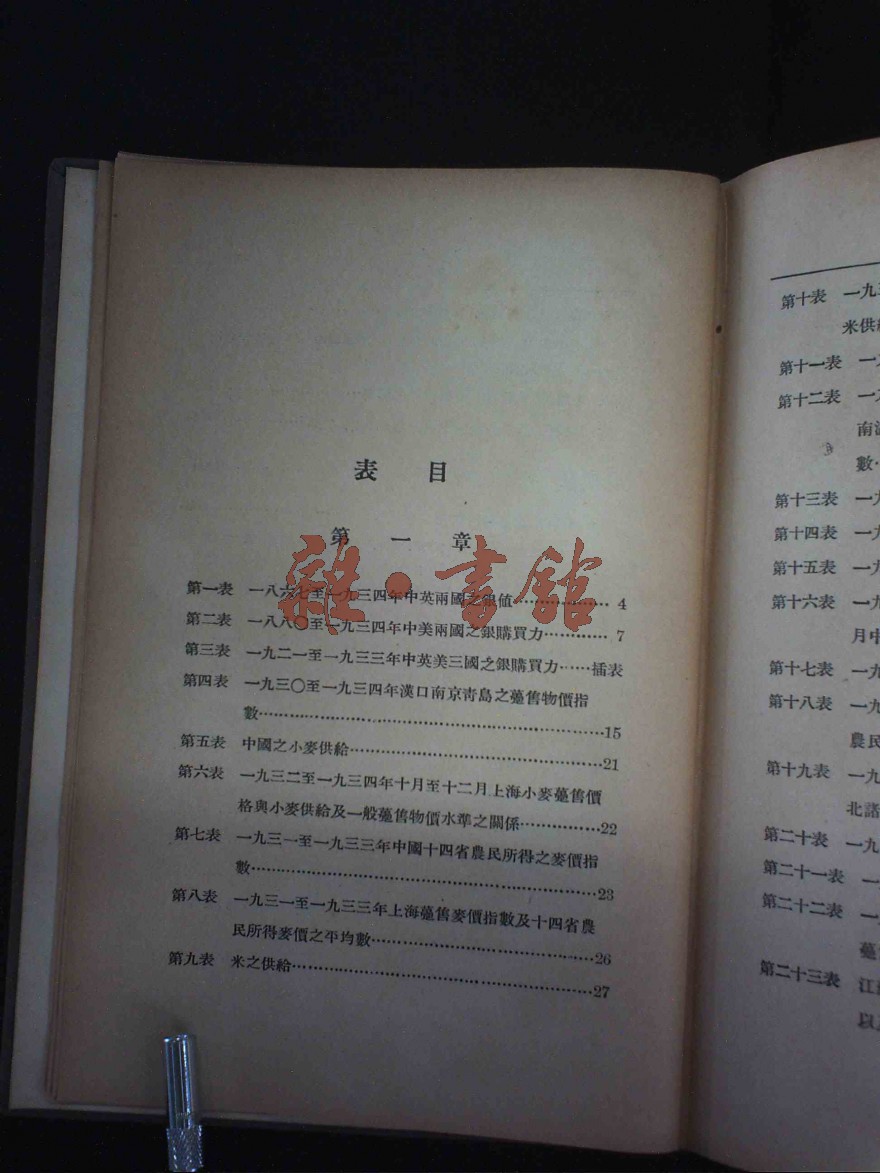 表目
第一章
第一表 一八六七至一九三四年中英兩國之銀値……………… 4
第二表 一八八〇至一九三四年中美兩國之銀購買力………… 7
第三表 一九二一至一九三三年中英美三國之銀購買力……插表
第四表 一九三〇至一九三四年漢口南京靑島之躉售物價指
數………………………………………………………15
第五表 中國之小麥供給………………………………………21
第六表 一九三二至一九三四年十月至十二月上海小麥躉售價
格與小麥供給及一般躉售物價水準之關係……………22
第七表 一九三一至一九三三年中國十四省農民所得之麥價指
數………………………………………………………23
第八表 一九三一至一九三三年上海躉售麥價指數及十四省農
民所得麥價之平均數……………………………………26
第九表 米之供給………………………………………………27
雜·書館
第十表 一九三
米供
第十一表 一
第十二表 一
南
數
第十三表 一九
第十四表 一九
第十五表 一九
第十六表 一九
月中
第十七表 一九
第十八表 一九
農民
第十九表 一九
北諸
第二十表 一九
第二十一表 一
第二十二表 一
躉
第二十三表 江
以